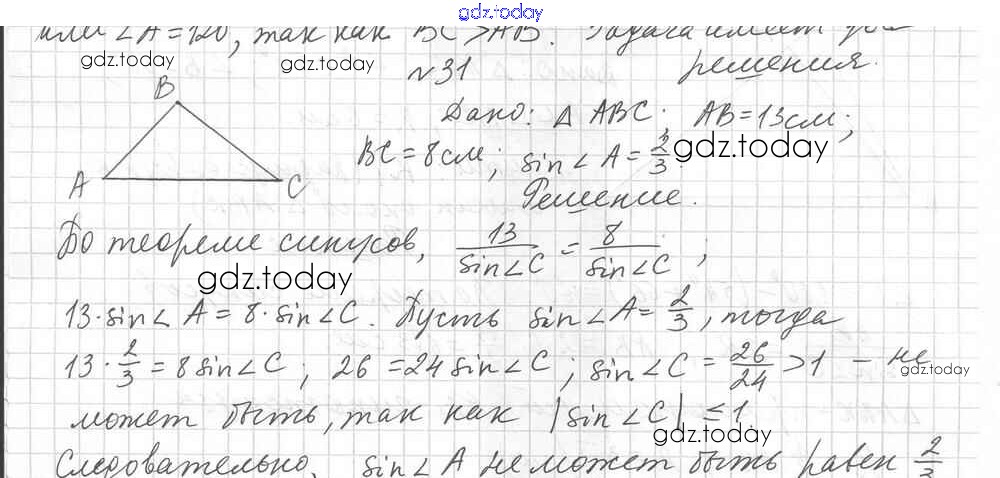 gdz.today
или ∠A=120, так как BC>AB. Задача имеет два
gdz.today gdz.today
№31 решения.
B
Дано: △ ABC. AB=13см;
A C
BC=8см; sin∠A=2/3. gdz.today
Решение.
По теореме синусов, 13/sin∠C = 8/sin∠C ;
gdz.today
13·sin∠A=8·sin∠C. Пусть sin∠A=2/3, тогда
13·2/3=8sin∠C; 26=24sin∠C; sin∠C=26/24>1 – не
gdz.today
может быть, так как |sin∠C|≤1.
gdz.today
Следовательно, sin∠A не может быть равен 2/3